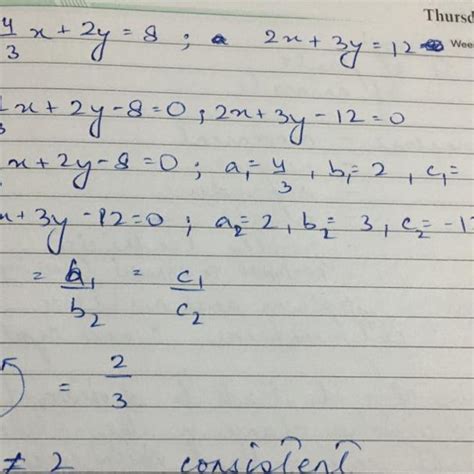 Thursd
4/3 x + 2y = 8 ; 2x + 3y = 12
Wee
x + 2y - 8 = 0 ; 2x + 3y - 12 = 0
x + 2y - 8 = 0 ; a₁ = 4/3 , b₁ = 2 , c₁ =
x + 3y - 12 = 0 ; a₂ = 2 , b₂ = 3 , c₂ = - 1
= b₁/b₂ = c₁/c₂
= 2/3
≠ 2 consistent